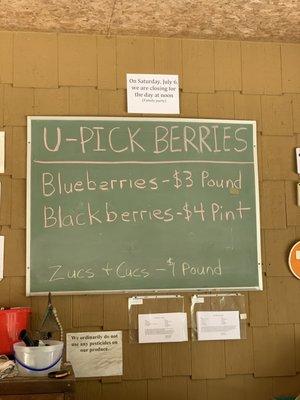 On Saturday, July 6
we are closing for
the day at noon
(Family party)
U-PICK BERRIES
Blueberries-$3 Pound
Blackberries-$4 Pint
Zucs + Cucs-$1 Pound
We ordinarily do not
use any pesticides on
our produce.